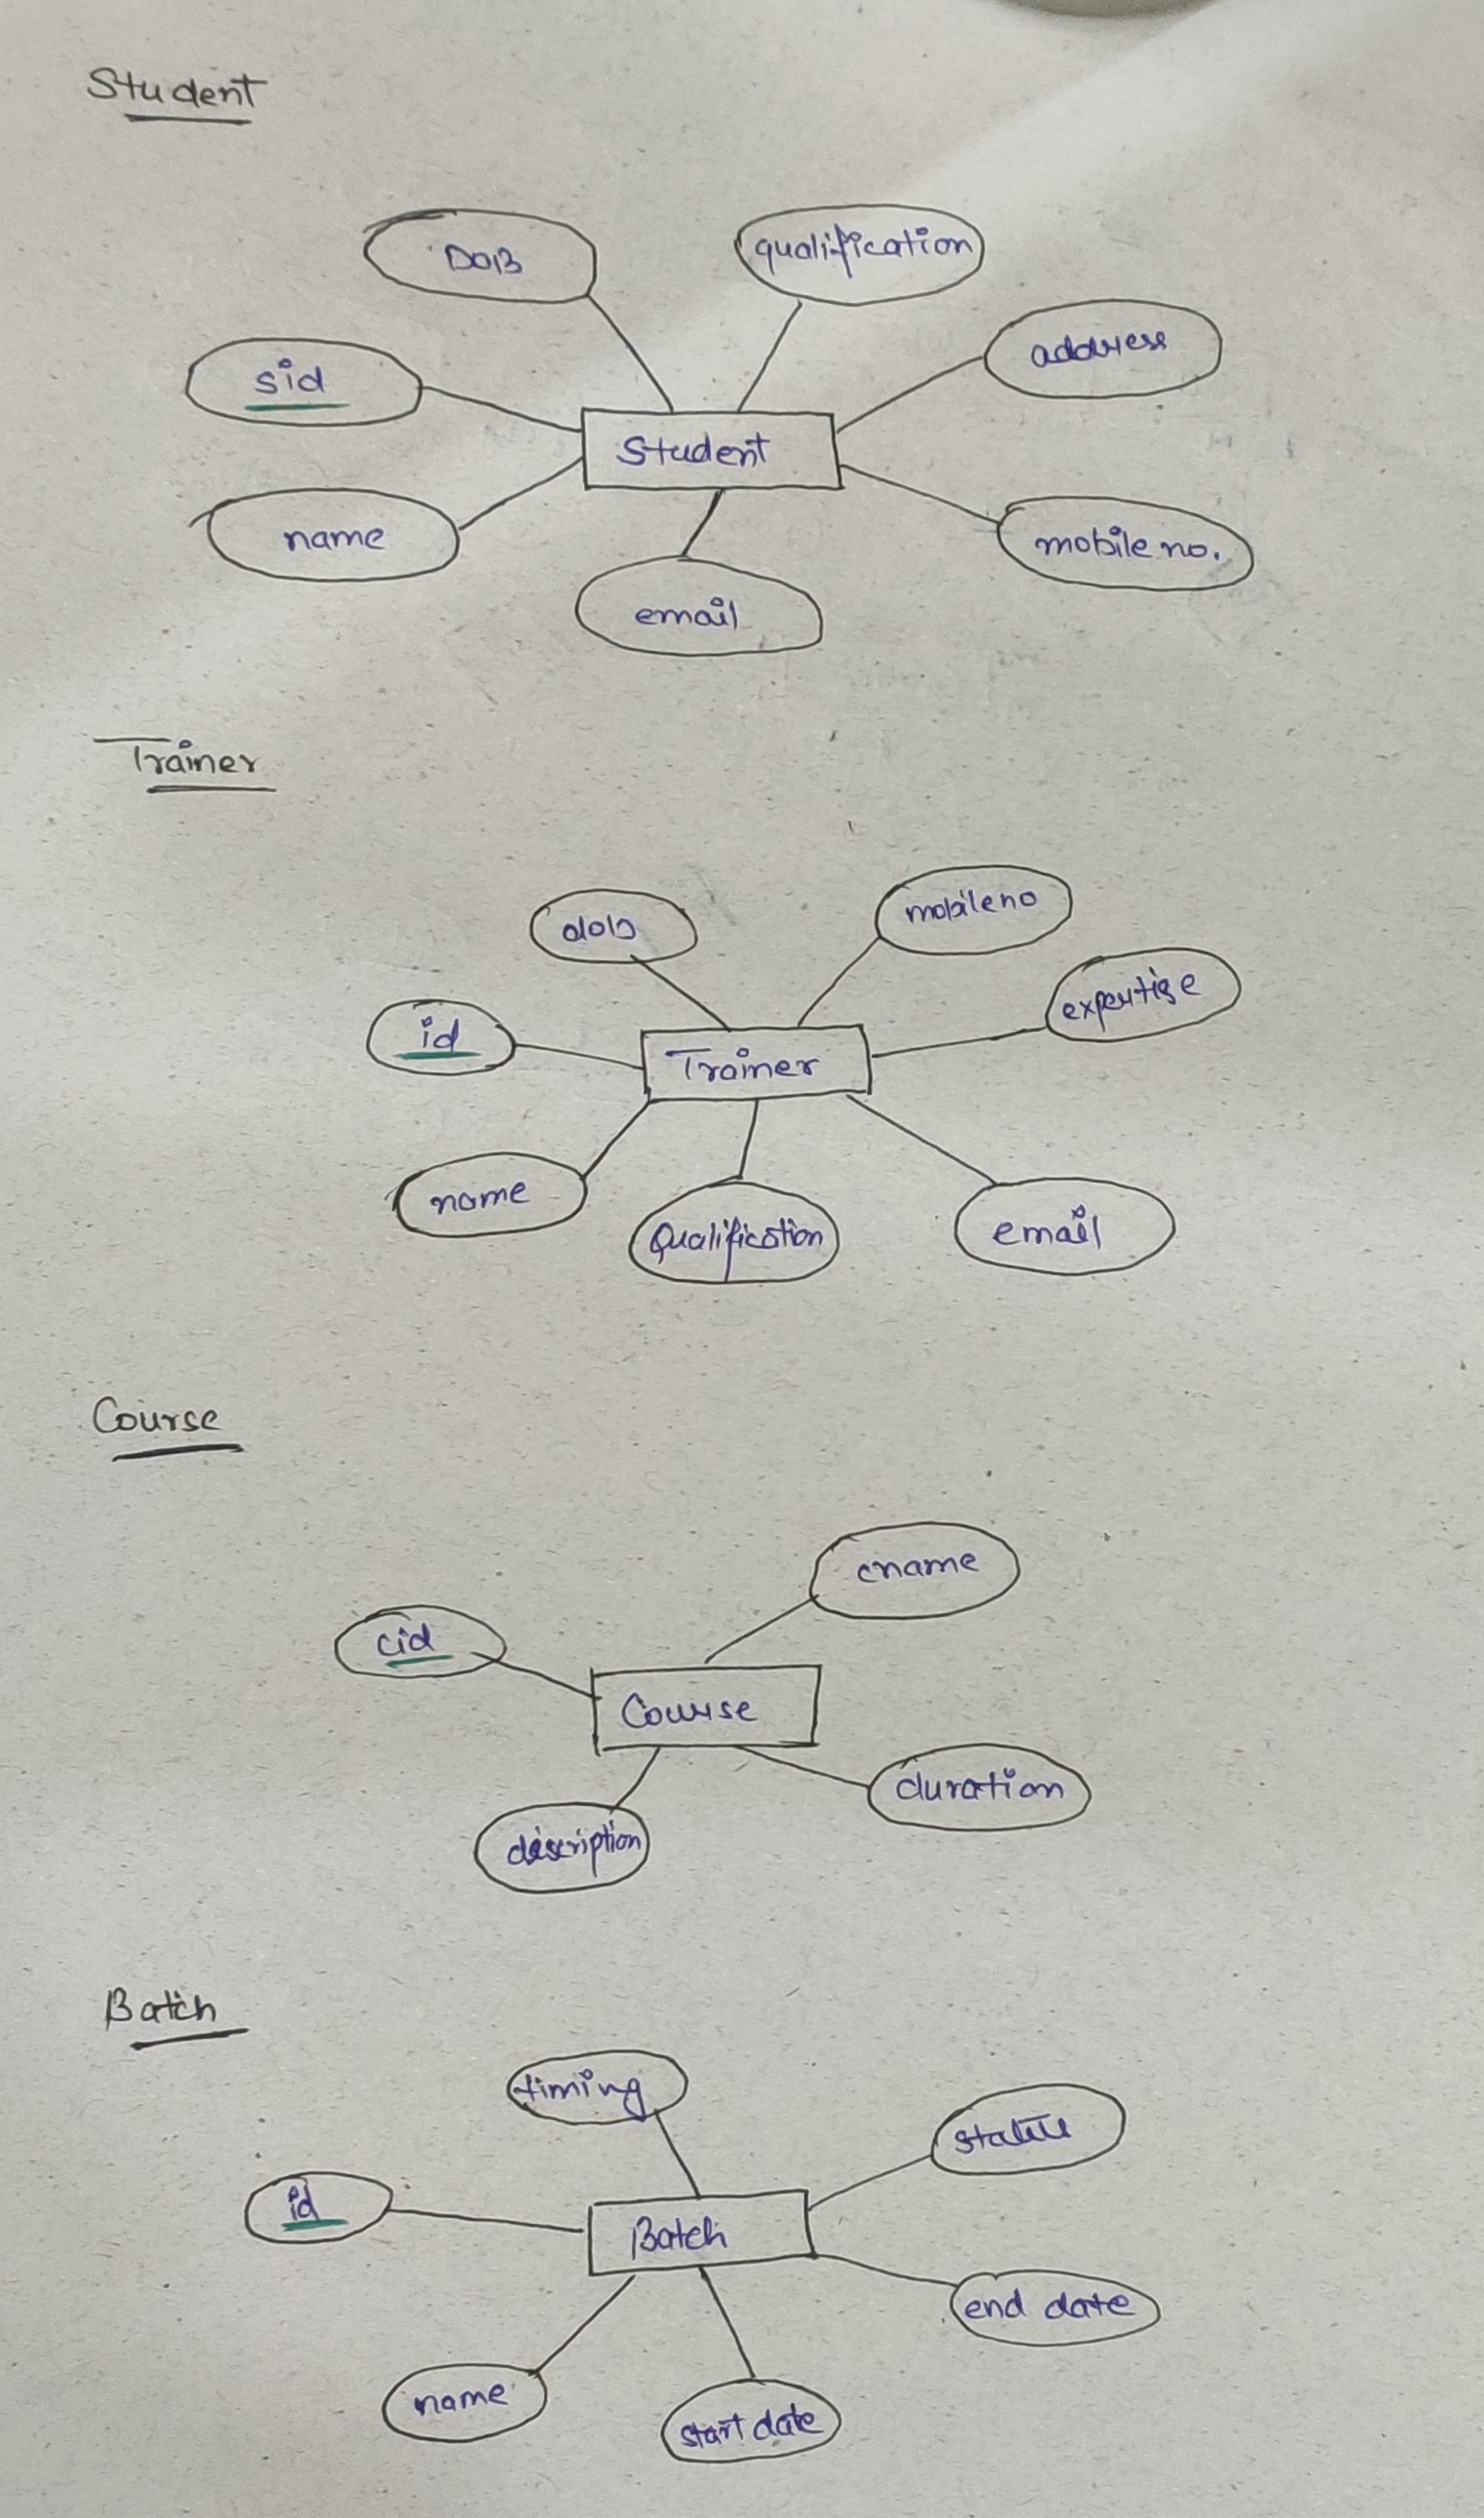 Student
DOB
qualification
sid
address
Student
name
mobile no.
email
Trainer
dob
mobile no
expertise
id
Trainer
name
Qualification
email
Course
cname
cid
Course
duration
description
Batch
timing
status
id
Batch
end date
name
start date